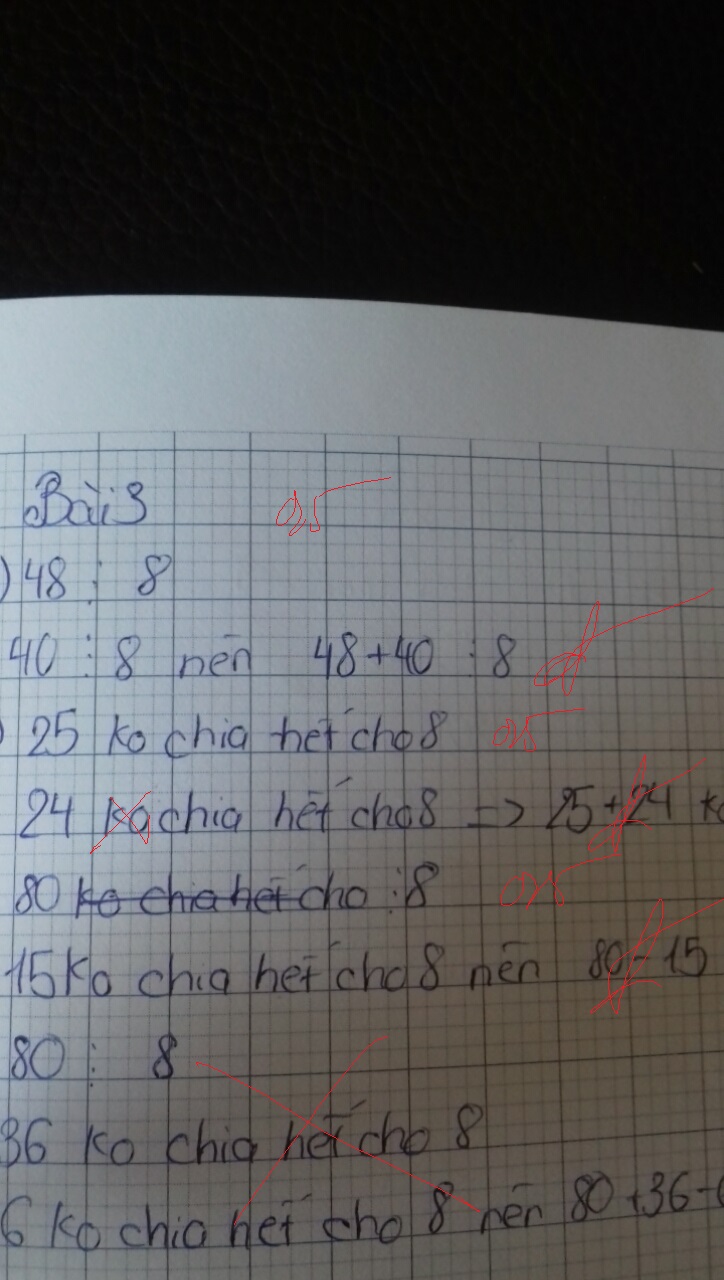 Bài 3 0,5
) 48 ⋮ 8
40 ⋮ 8 nên 48+40 ⋮ 8 đ
) 25 ko chia hết cho 8 0,5
24 ko chia hết cho 8 => 25+24 k
80 ko chia hết cho ⋮ 8 0,5
15 ko chia hết cho 8 nên 80-15
80 ⋮ 8
36 ko chia hết cho 8
6 ko chia hết cho 8 nên 80+36-